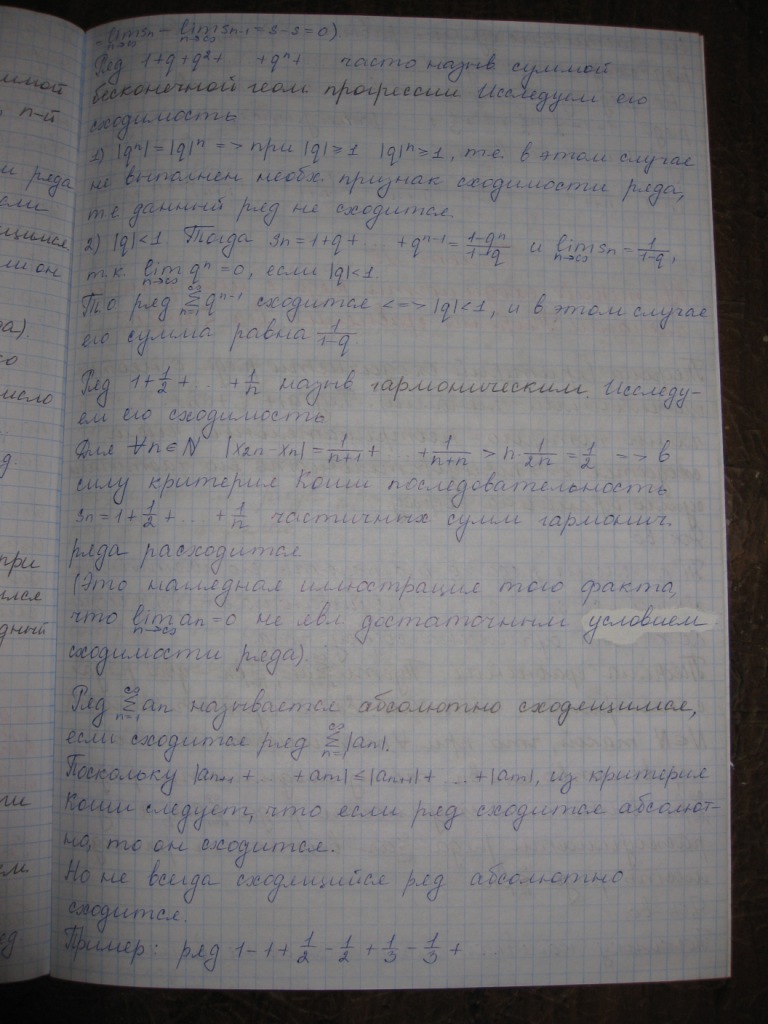 = lim n→∞ Sn − lim n→∞ Sn-1 = S − S = 0)
Ряд 1+q+q²+ +qⁿ+ часто назыв суммой
бесконечной геом прогрессии Исследуем его
сходимость
1) |qⁿ| = |q|ⁿ => при |q|≥1 |q|ⁿ≥1, т.е. в этом случае
не выполнен необх. признак сходимости ряда,
т е данный ряд не сходится.
2) |q|<1. Тогда Sn = 1+q+... +qⁿ⁻¹ = (1-qⁿ)/(1-q) и lim n→∞ Sn = 1/(1-q),
т.к. lim n→∞ qⁿ = 0, если |q|<1.
Т.о ряд ∞ Σ n=1 qⁿ⁻¹ сходится <=> |q|<1, и в этом случае
его сумма равна 1/(1-q)
Ряд 1+1/2+... +1/n назыв гармоническим. Исследу-
ем его сходимость
Для ∀n∈N |X2n-Xn| = 1/(n+1)+ ... +1/(n+n) > n·1/2n = 1/2 => в
силу критерия Коши последовательность
Sn = 1+1/2+...+1/n частичных сумм гармонич.
ряда расходится
(Это наглядная иллюстрация того факта,
что lim n→∞ an = 0 не явл достаточным условием
сходимости ряда).
Ряд ∞ Σ n=1 an называется абсолютно сходящимся,
если сходится ряд ∞ Σ n=1 |an|.
Поскольку |an+1 + ... + am| ≤ |an+1| + ... + |am|, из критерия
Коши следует, что если ряд сходится абсолют-
но, то он сходится.
Но не всегда сходящийся ряд абсолютно
сходится.
Пример: ряд 1 - 1 + 1/2 - 1/2 + 1/3 - 1/3 +
ммой
n-й
ряда
ли он
со
число
при
дный